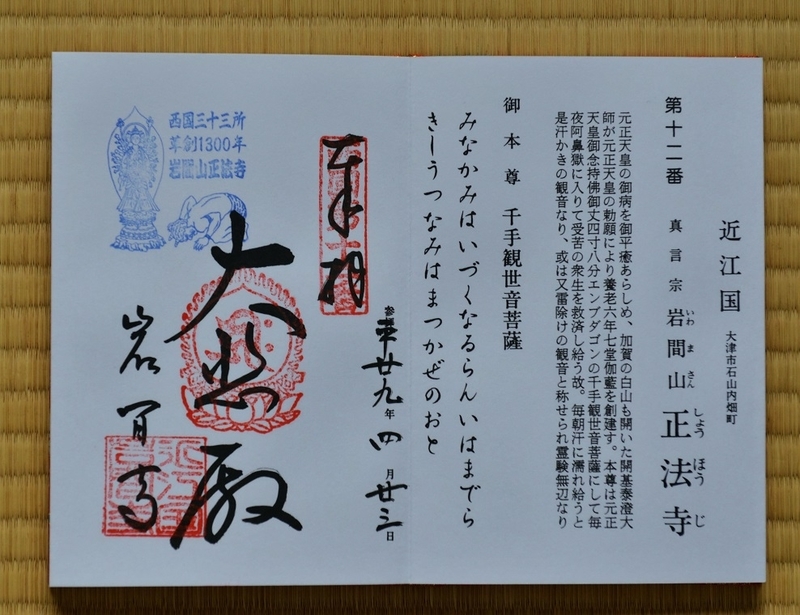 近江国 大津市石山内畑町
第十二番 真言宗 岩間山 正法寺
いわ ま さん しょう ほう じ
元正天皇の御病を御平癒あらしめ、加賀の白山も開いた開基泰澄大
師が元正天皇の勅願により養老六年七堂伽藍を創建す。本尊は元正
天皇御念持佛御丈四寸八分エンブダゴンの千手観世音菩薩にして毎
夜阿鼻獄に入りて受苦の衆生を救済し給う故。毎朝汗に濡れ給うと
是汗かきの観音なり、或は又雷除けの観音と称せられ霊験無辺なり
御本尊 千手観世音菩薩
みなかみはいづくなるらんいはまでら
きしうつなみはまつかぜのおと
奉拝
平廿九年四月廿三日
大悲殿
岩間寺
西国三十三所
草創1300年
岩間山正法寺